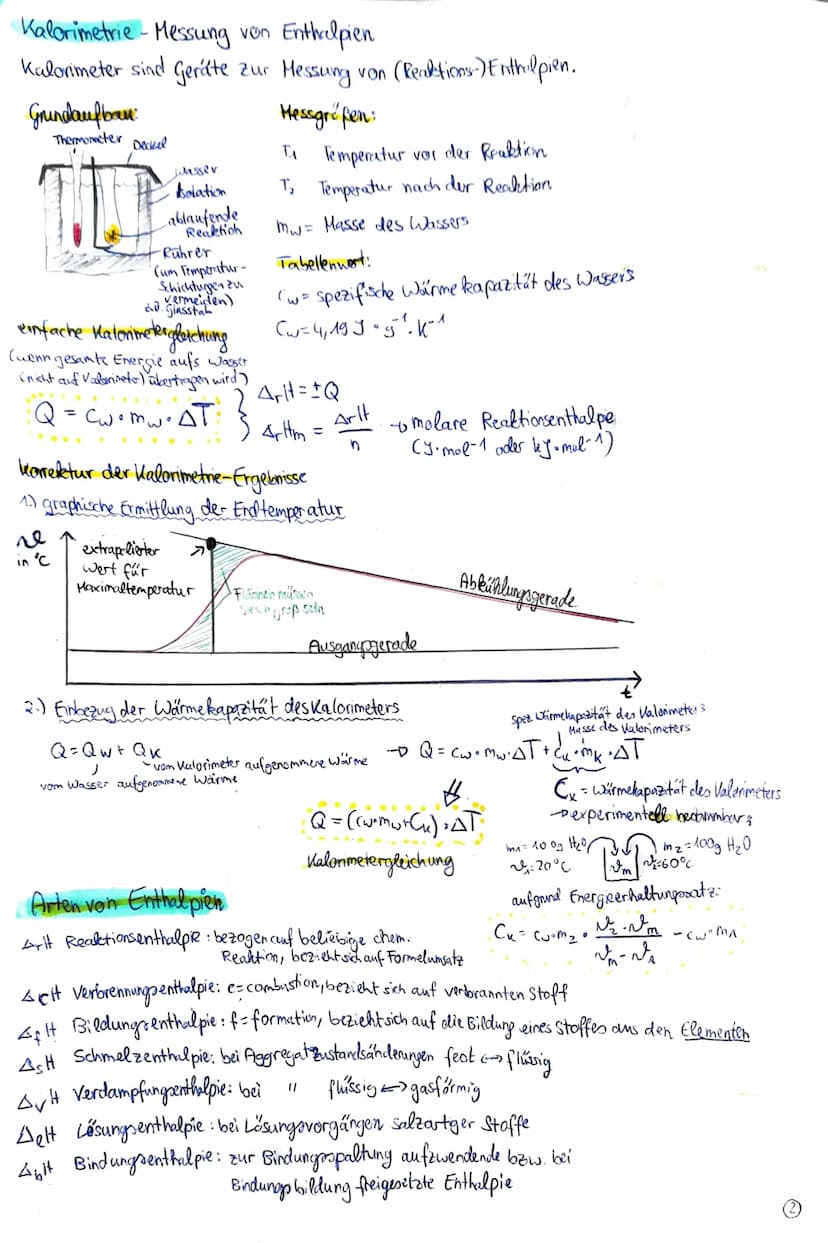 Kalorimetrie - Messung von Enthalpien
Kalorimeter sind Geräte zur Messung von (Reaktions-)Enthalpien.
Grundaufbau:
Thermometer
Deckel
Wasser
Isolation
ablaufende
Reaktion
Rührer
(um Temperatur-
Schichtungen zu
vermeiden)
z.B. Glasstab
Messgrößen:
T₁ Temperatur vor der Reaktion
T₂ Temperatur nach der Reaktion
mw = Masse des Wassers
Tabellenwert:
cw = spezifische Wärmekapazität des Wassers
cw = 4,19 J · g⁻¹ · K⁻¹
einfache Kalorimetergleichung
(wenn gesamte Energie aufs Wasser
(nicht auf Kalorimeter) übertragen wird)
Q = cw · mw · ΔT } ΔrH = ±Q
ΔrHm = ΔrH / n → molare Reaktionsenthalpe
(J·mol⁻¹ oder kJ·mol⁻¹)
Korrektur der Kalorimetrie-Ergebnisse
1.) graphische Ermittlung der Endtemperatur
ϑ
in °C
extrapolierter
Wert für
Maximaltemperatur
Flächen müssen
gleich groß sein
Abkühlungsgerade
Ausgangsgerade
t
2.) Einbezug der Wärmekapazität des Kalorimeters
spez. Wärmekapazität des Kalorimeters
Masse des Kalorimeters
Q = Qw + QK
vom Kalorimeter aufgenommene Wärme
vom Wasser aufgenommene Wärme
→ Q = cw · mw · ΔT + cK · mK · ΔT
CK = Wärmekapazität des Kalorimeters
→ experimentell bestimmbar:
Q = (cw·mw + CK) · ΔT
Kalorimetergleichung
m₁ = 100g H₂O
ϑ₁ = 20°C
ϑm
m₂ = 100g H₂O
ϑ₂ = 60°C
aufgrund Energieerhaltungssatz:
CK = cw · m₂ · (ϑ₂ - ϑm) / (ϑm - ϑ₁) - cw · m₁
Arten von Enthalpien
ΔrH Reaktionsenthalpie: bezogen auf beliebige chem.
Reaktion, bezieht sich auf Formelumsatz
ΔcH Verbrennungsenthalpie: c = combustion, bezieht sich auf verbrannten Stoff
ΔfH Bildungsenthalpie: f = formation, bezieht sich auf die Bildung eines Stoffes aus den Elementen
ΔsH Schmelzenthalpie: bei Aggregatzustandsänderungen fest ↔ flüssig
ΔvH Verdampfungsenthalpie: bei " flüssig ↔ gasförmig
ΔeH Lösungsenthalpie: bei Lösungsvorgängen salzartger Stoffe
ΔbH Bindungsenthalpie: zur Bindungsspaltung aufzuwendende bzw. bei
Bindungsbildung freigesetzte Enthalpie
2